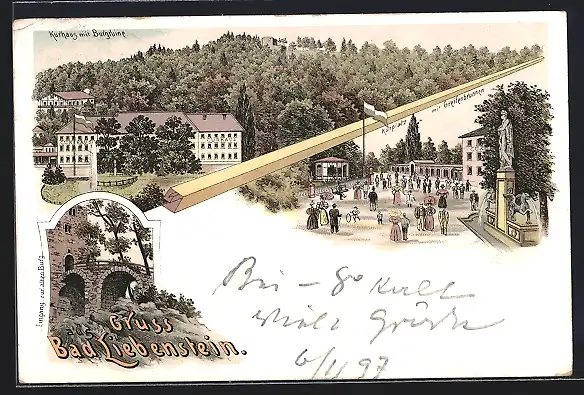 Kurhaus mit Burgruine
Kurplatz mit Grellenbrunnen
Eingang zur alten Burg.
Gruss
aus
Bad Liebenstein.
Bei – 8° kalt
viele Grüße
6/11 97